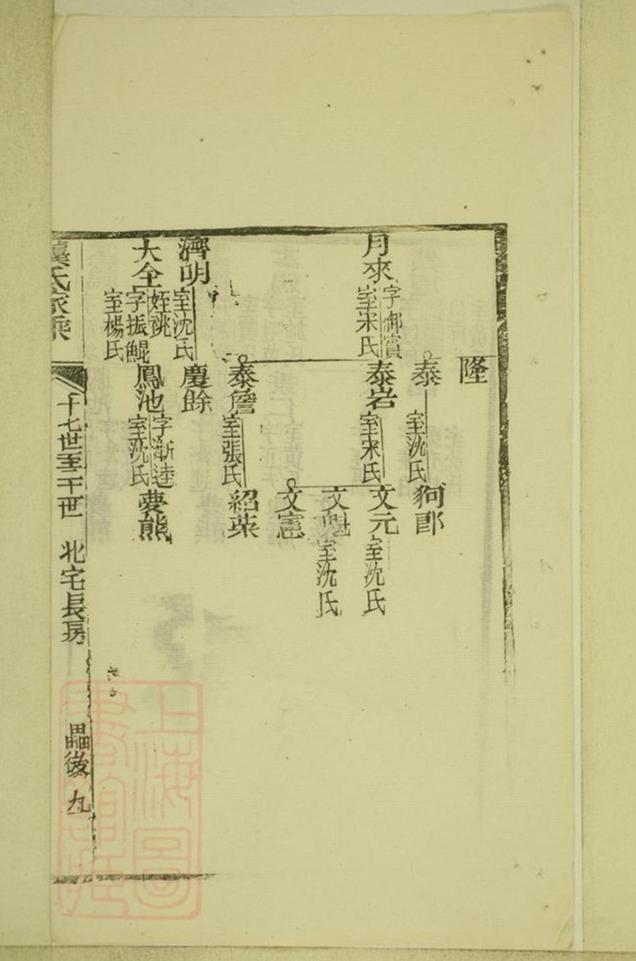 隆
泰 室沈氏 狗郎
月來 字御賓 室宋氏 泰岩 室宋氏 文元 室沈氏
文魁 室沈氏
文憲
泰詹 室張氏 紹
濟明 室沈氏 慶餘
大全 姪祧 字振鯤 室楊氏 鳳池 字漸逵 室沈氏 夢熊
氏家乘 十七世至二十世 北宅長房 畾後 九
上海圖書館藏